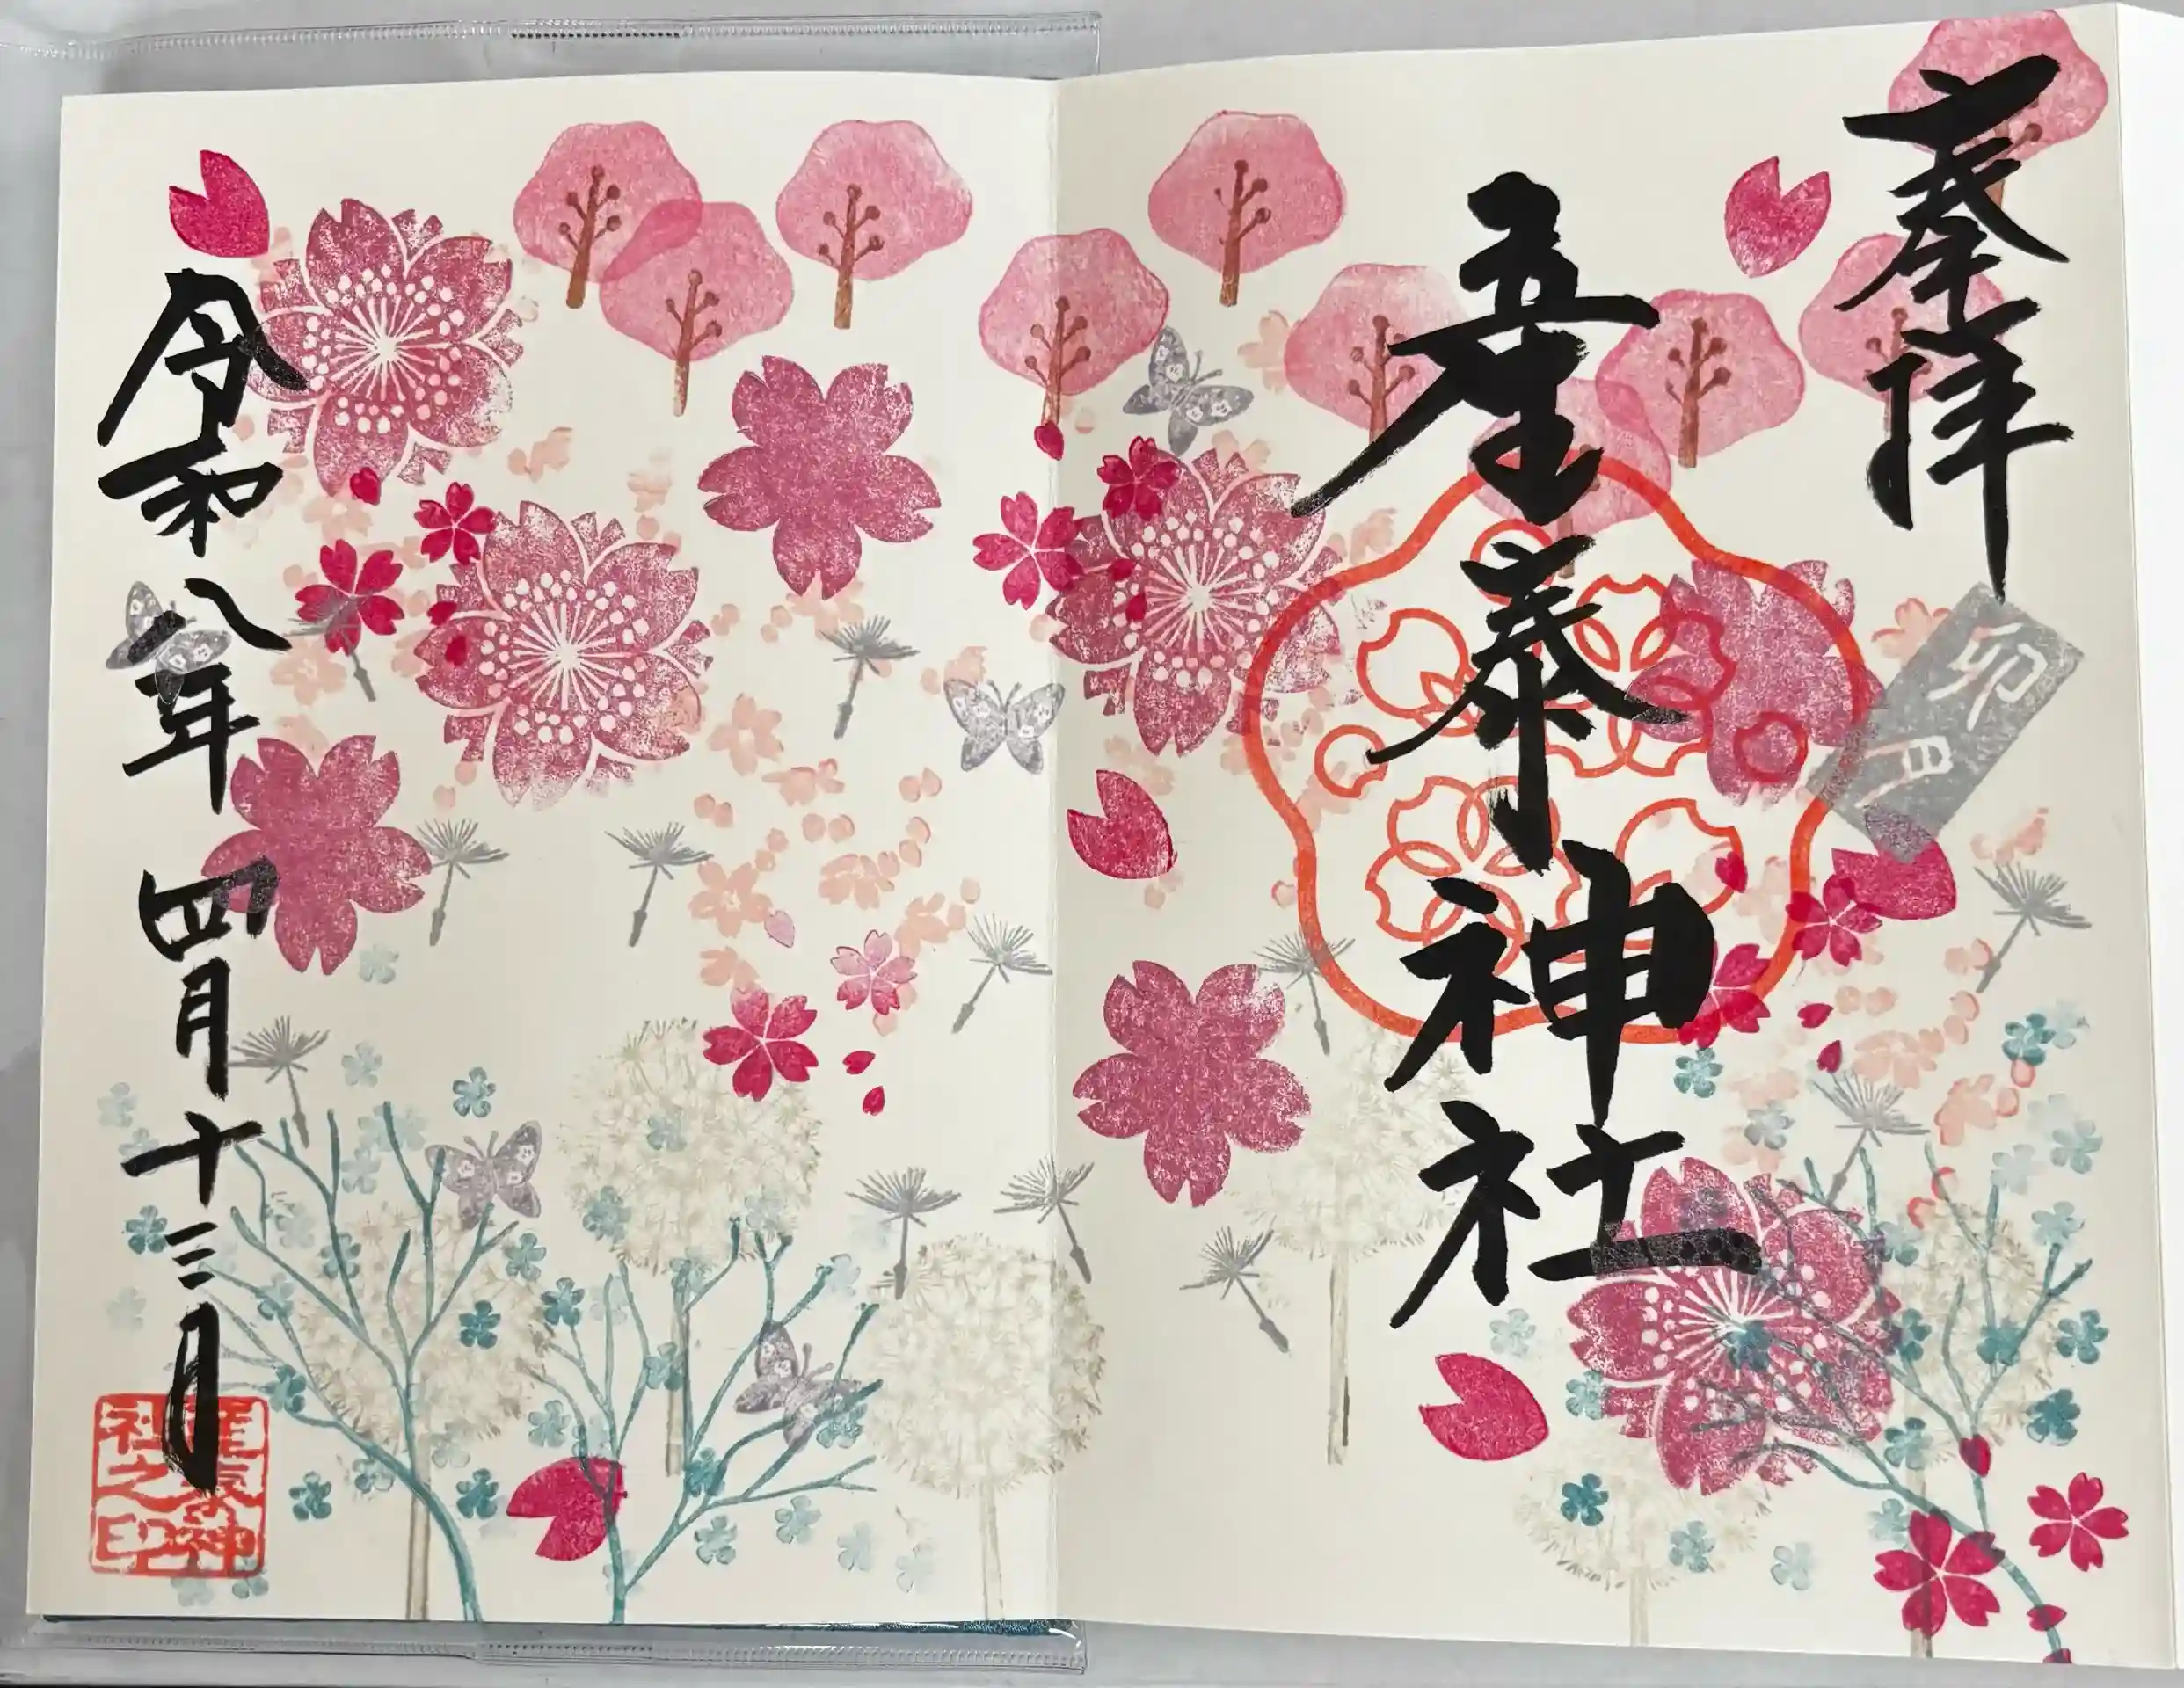 奉拝
卯月
産泰神社
令和八年四月十三月
産泰神社之印